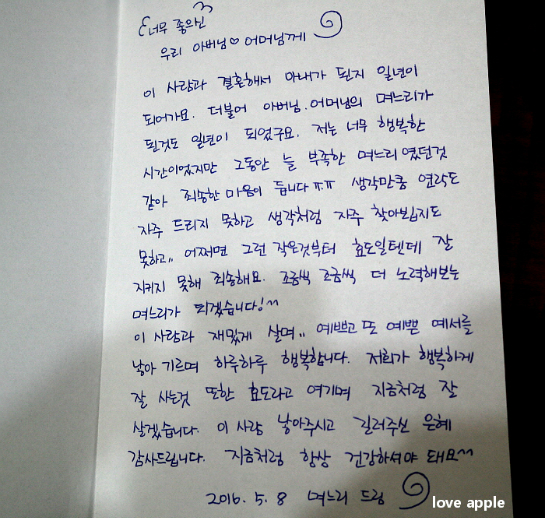 너무 좋으신
우리 아버님♡어머님께
이 사람과 결혼해서 아내가 된지 일년이
되어가요. 더불어 아버님.어머님의 며느리가
된것도 일년이 되었구요. 저는 너무 행복한
시간이었지만 그동안 늘 부족한 며느리였던것
같아 죄송한 마음이 듭니다 ㅠㅠ 생각만큼 연락도
자주 드리지 못하고 생각처럼 자주 찾아뵙지도
못하고,, 어쩌면 그런 작은것부터 효도일텐데 잘
지키지 못해 죄송해요. 조금씩 조금씩 더 노력해보는
며느리가 되겠습니다!~
이 사람과 재밌게 살며,, 예쁘고 또 예쁜 예서를
낳아 기르며 하루하루 행복합니다. 저희가 행복하게
잘 사는것 또한 효도라고 여기며 지금처럼 잘
살겠습니다. 이 사람 낳아주시고 길러주신 은혜
감사드립니다. 지금처럼 항상 건강하셔야 돼요~
2016. 5. 8 며느리 드림
love apple